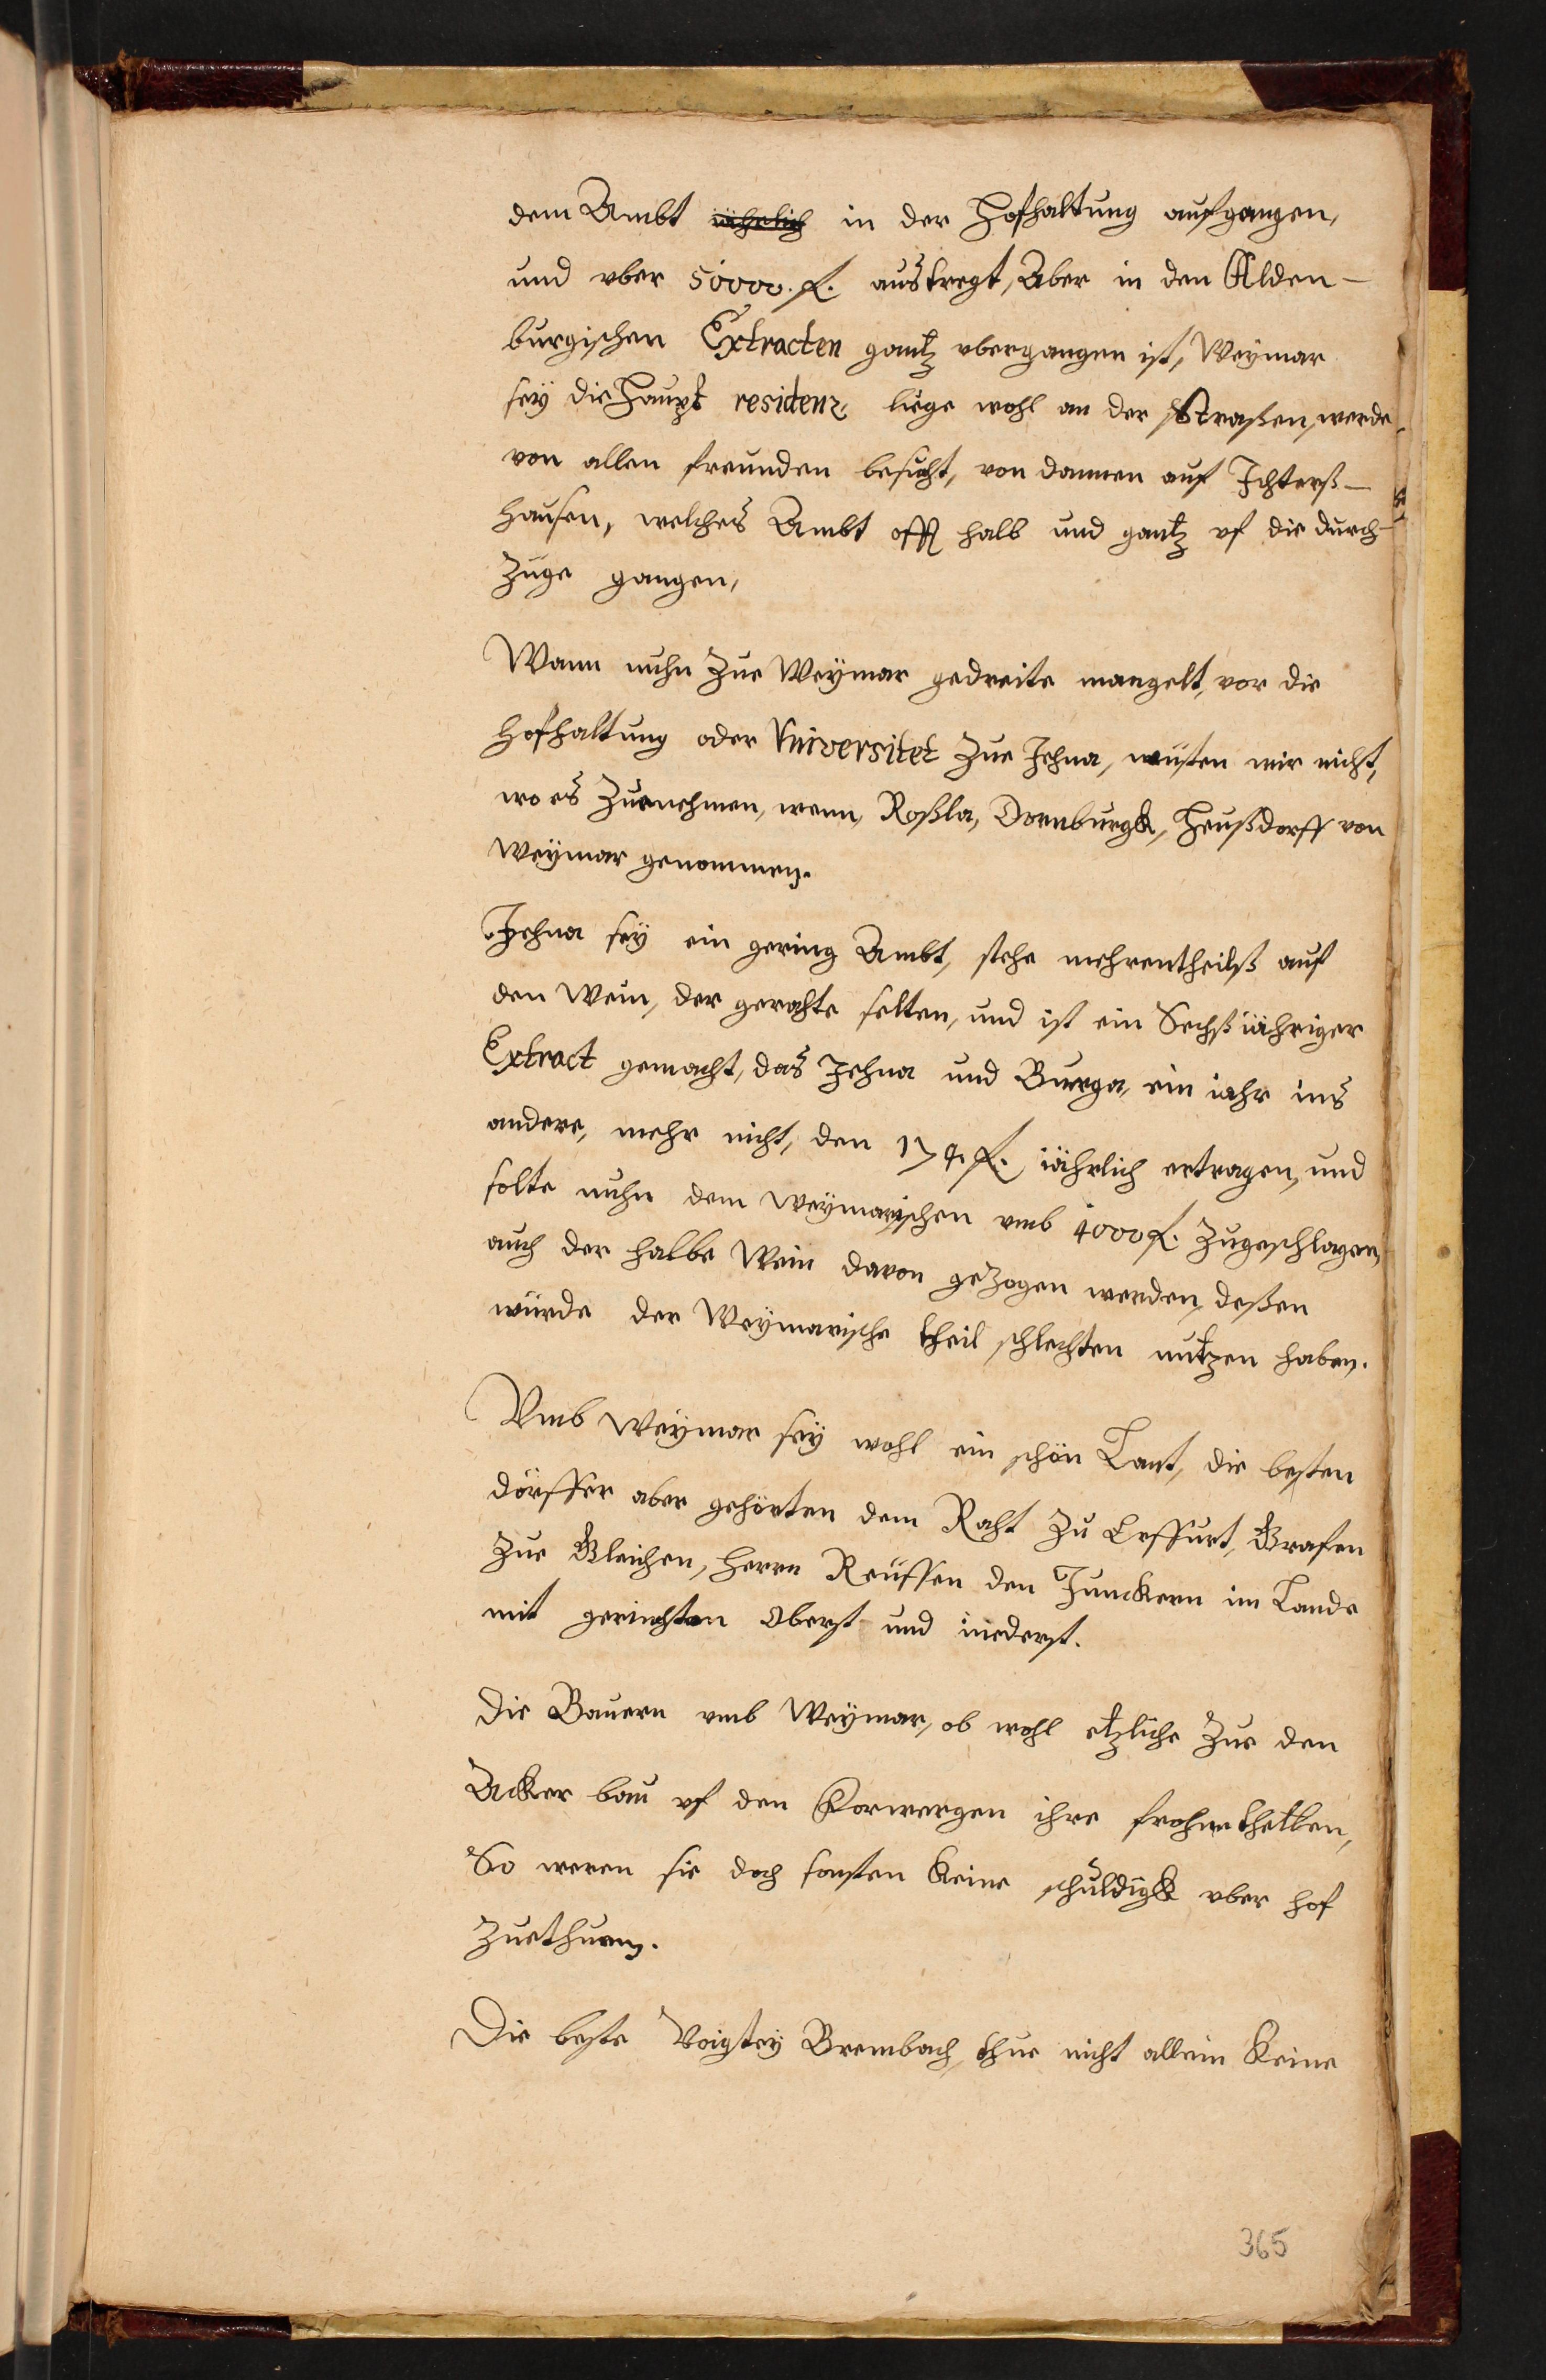 dem Ambt jährlich in der Hofhaltung aufgangen,
und vber 50000. f. austregt, Aber in den Alden-
burgischen Extracten gantz vbergangen ist, Weymar
seÿ die Haupt residenz, liege wohl an der Straßen, werde
von allen freunden besucht, von dannen auf Ichterß-
hausen, welches Ambt offt halb und gantz vf die durch-
züge gangen,
Wann nuhn zue Weÿmar gedreite mangelt, vor die
Hofhaltung oder Vniversitet zue Jehna, wüsten wir nicht,
wo es zuenehmen, wenn, Roßla, Dornburgk, Heußdorff von
Weÿmar genommen.
Jehna seÿ ein gering Ambt, stehe mehrentheilß auf
den Wein, der gerahte selten, und ist ein Sechßjähriger
Extract gemacht, das Jehna und Burga, ein jahr ins
andere, mehr nicht, den 174. f. jährlich ertragen, und
solte nuhn dem Weÿmarischen vmb 4000 f. zugeschlagen,
auch der halbe Wein davon gezogen werden, deßen
würde der Weÿmarische theil schlechten nutzen haben.
Vmb Weÿmar seÿ wohl ein schön Lant, die besten
dörffer aber gehörten dem Raht zu Erffurt, Grafen
zue Gleichen, Herrn Reussen den Junckern im Lande
mit gerichten Oberst und niederst.
Die Bauern vmb Weÿmar, ob wohl etzliche zue den
Acker bau vf den Vorwergen ihre frohne thetten,
So weren sie doch sonsten keine schuldigk vber hof
zuethuen.
Die beste Voigteÿ Brembach, thue nicht allein keine
365